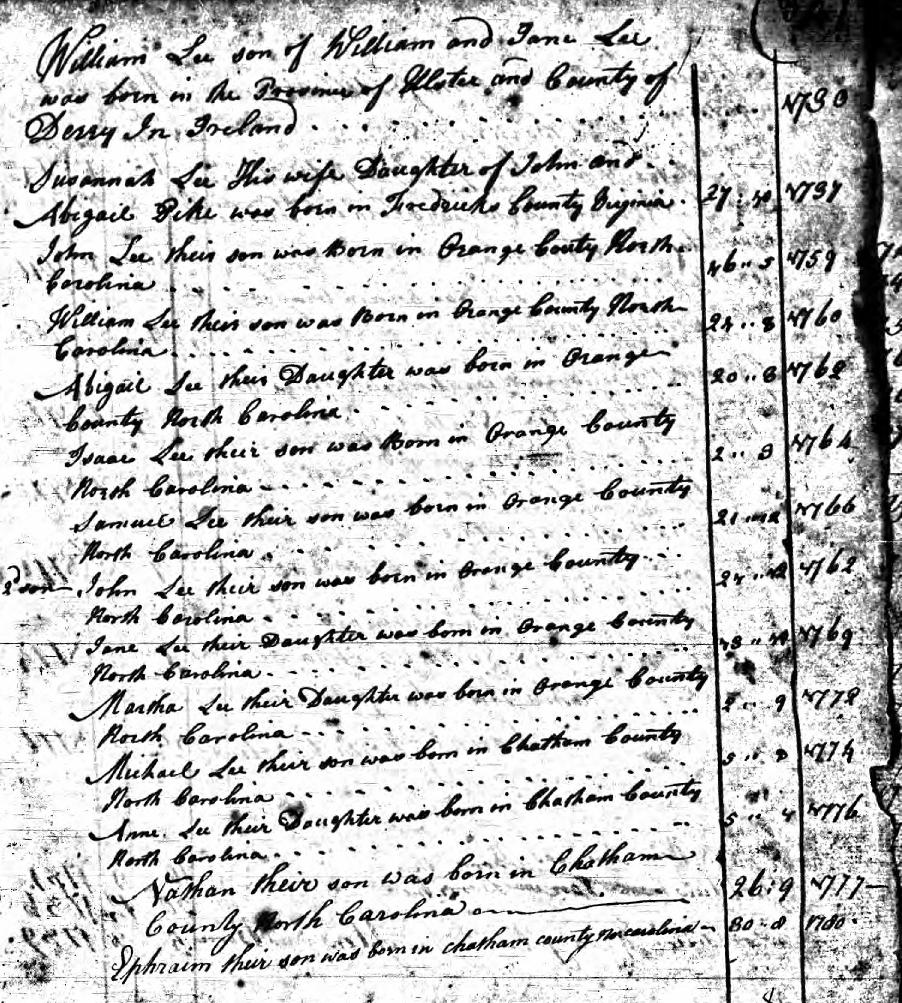 William Lee son of William and Jane Lee
was born in the Province of Ulster and County of
Derry In Ireland 1730
Susannah Lee His wife Daughter of John and
Abigail Pike was born in Fredricks County Virginia. 1737
John Lee their son was Born in Orange Couty North 1759
Carolina
William Lee their son was Born in Orange County North 1760
Carolina
Abigail Lee their Daughter was born in Orange
County North Carolina
Isaac Lee their son was Born in Orange County 1764
North Carolina
Samuel Lee their son was born in Orange County 1766
North Carolina
2d son John Lee their son was born in Orange County
North Carolina
Jane Lee their Daughter was born in Orange County 1769
North Carolina
Martha Lee their Daughter was born in Orange County 2 9
North Carolina
Michael Lee their son was born in Chatham County 1774
North Carolina
Anne Lee their Daughter was born in Chatham County 1776
North Carolina
Nathan their son was born in Chatham 26:9 1777
County North Carolina
Ephraim their son was born in chatham county No carolina 30 8 1780